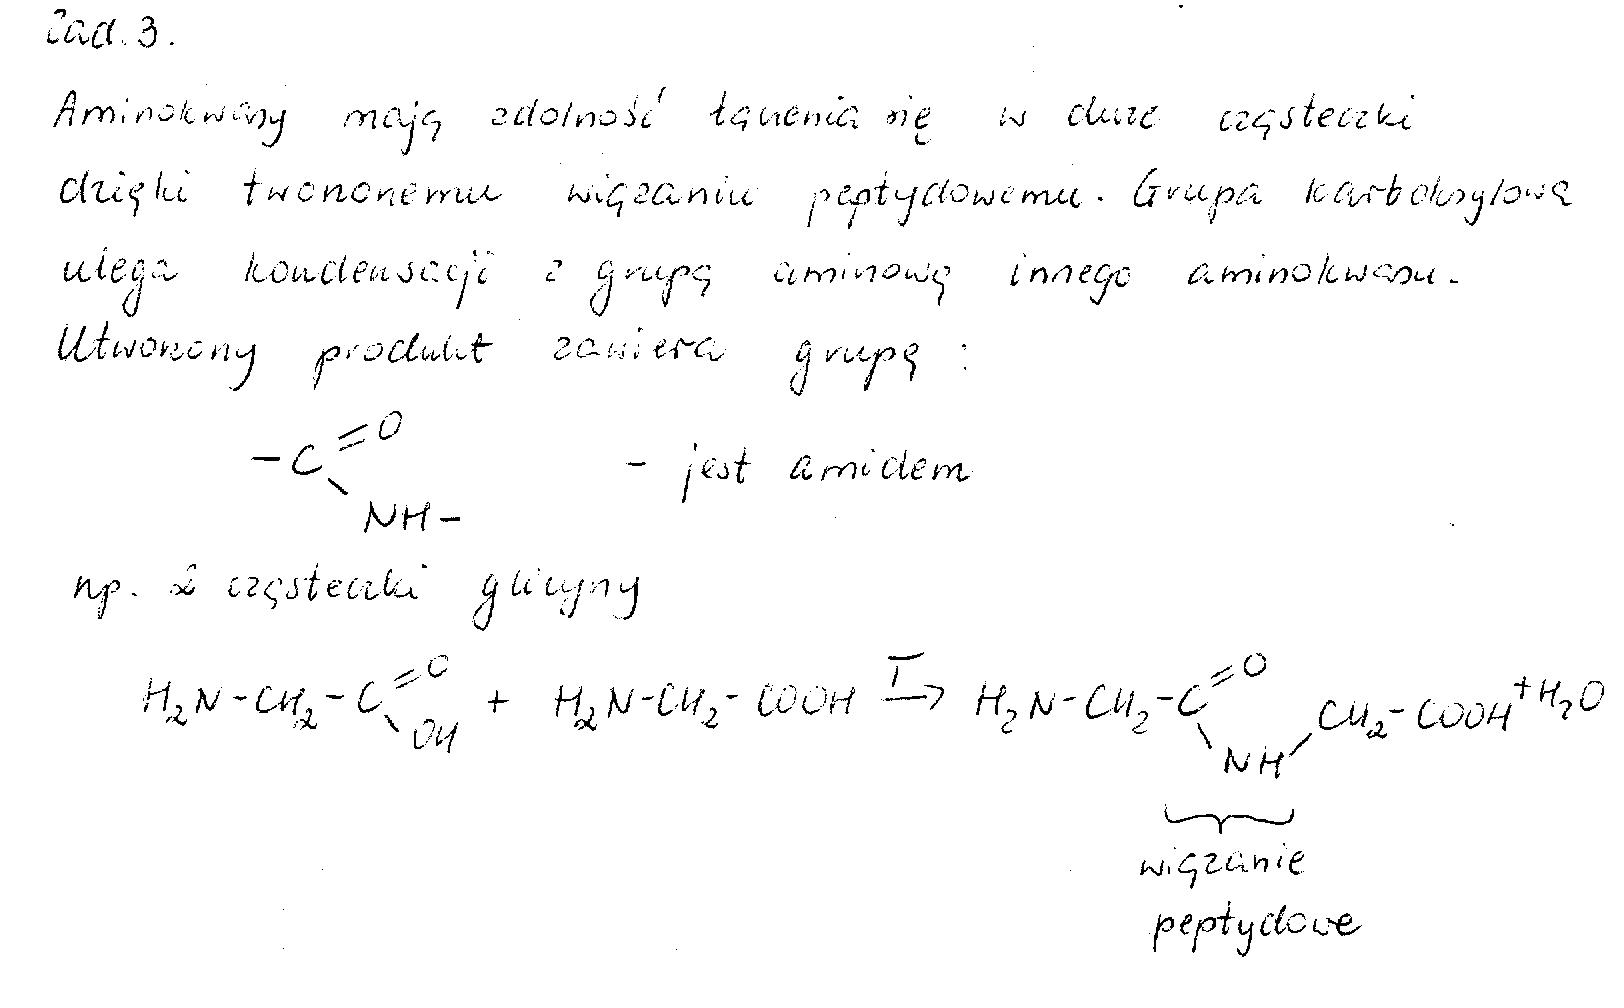 Zad. 3.
Aminokwasy mają zdolność łączenia się w duże cząsteczki
dzięki tworzonemu wiązaniu peptydowemu. Grupa karboksylowa
ulega kondensacji z grupą aminową innego aminokwasu.
Utworzony produkt zawiera grupę :
-C=O
NH-
- jest amidem
np. 2 cząsteczki glicyny
H₂N-CH₂-C=O OH + H₂N-CH₂-COOH T→ H₂N-CH₂-C=O NH-CH₂-COOH + H₂O
wiązanie
peptydowe